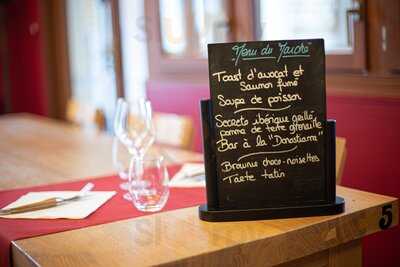 Menu du Marché
Toast d'avocat et
Saumon fumé
Soupe de poisson
Secreto ibérique grillé
pomme de terre grenaille
Bar à la "Donostiarra"
Brownie choco-noisettes
Tarte tatin
5